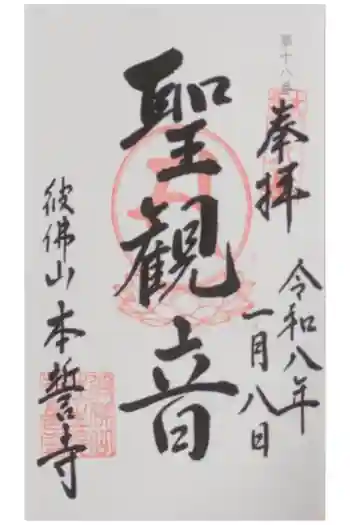 第十八番
奉拝
令和八年
一月八日
聖観音
彼佛山 本誓寺